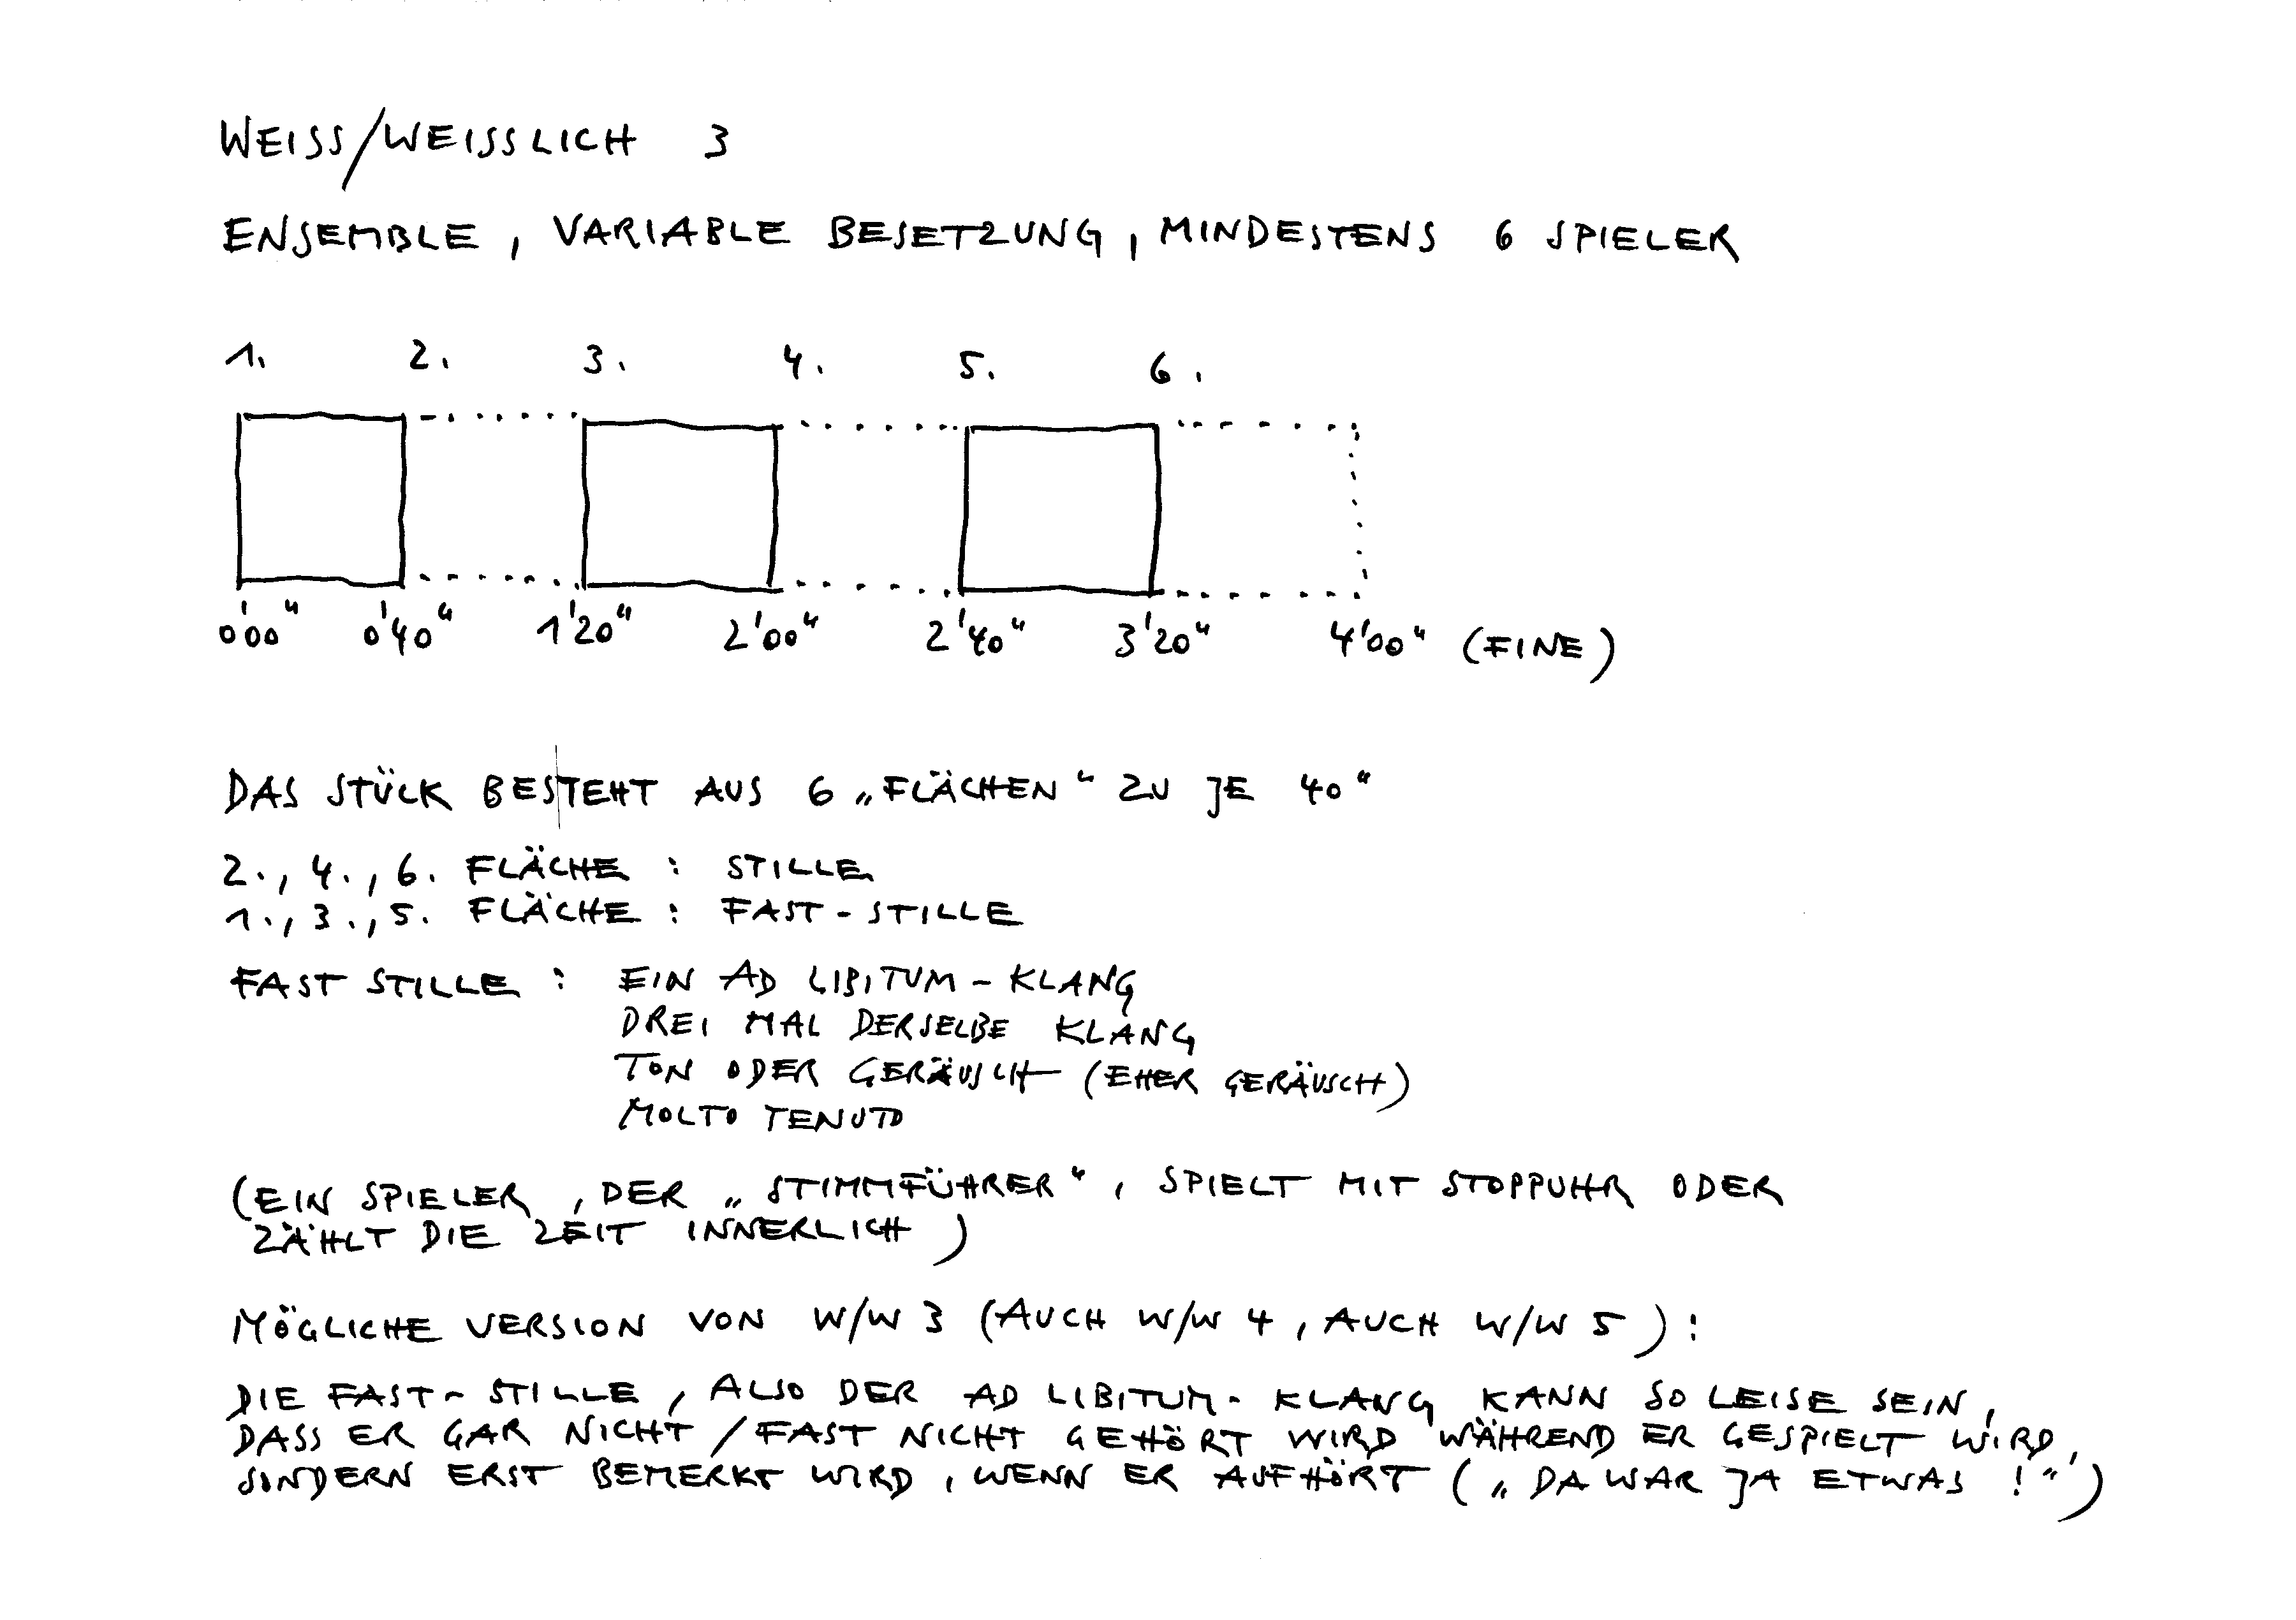 WEISS/WEISSLICH 3
ENSEMBLE, VARIABLE BESETZUNG, MINDESTENS 6 SPIELER
1. 2. 3. 4. 5. 6.
0'00" 0'40" 1'20" 2'00" 2'40" 3'20" 4'00" (FINE)
DAS STÜCK BESTEHT AUS 6 „FLÄCHEN“ ZU JE 40"
2., 4., 6. FLÄCHE: STILLE
1., 3., 5. FLÄCHE: FAST-STILLE
FAST STILLE: EIN AD LIBITUM-KLANG
DREI MAL DERSELBE KLANG
TON ODER GERÄUSCH (EHER GERÄUSCH)
MOLTO TENUTO
(EIN SPIELER, DER „STIMMFÜHRER“, SPIELT MIT STOPPUHR ODER
ZÄHLT DIE ZEIT INNERLICH)
MÖGLICHE VERSION VON W/W 3 (AUCH W/W 4, AUCH W/W 5):
DIE FAST-STILLE, ALSO DER AD LIBITUM-KLANG KANN SO LEISE SEIN,
DASS ER GAR NICHT/FAST NICHT GEHÖRT WIRD WÄHREND ER GESPIELT WIRD,
SONDERN ERST BEMERKT WIRD, WENN ER AUFHÖRT („DA WAR JA ETWAS!“)